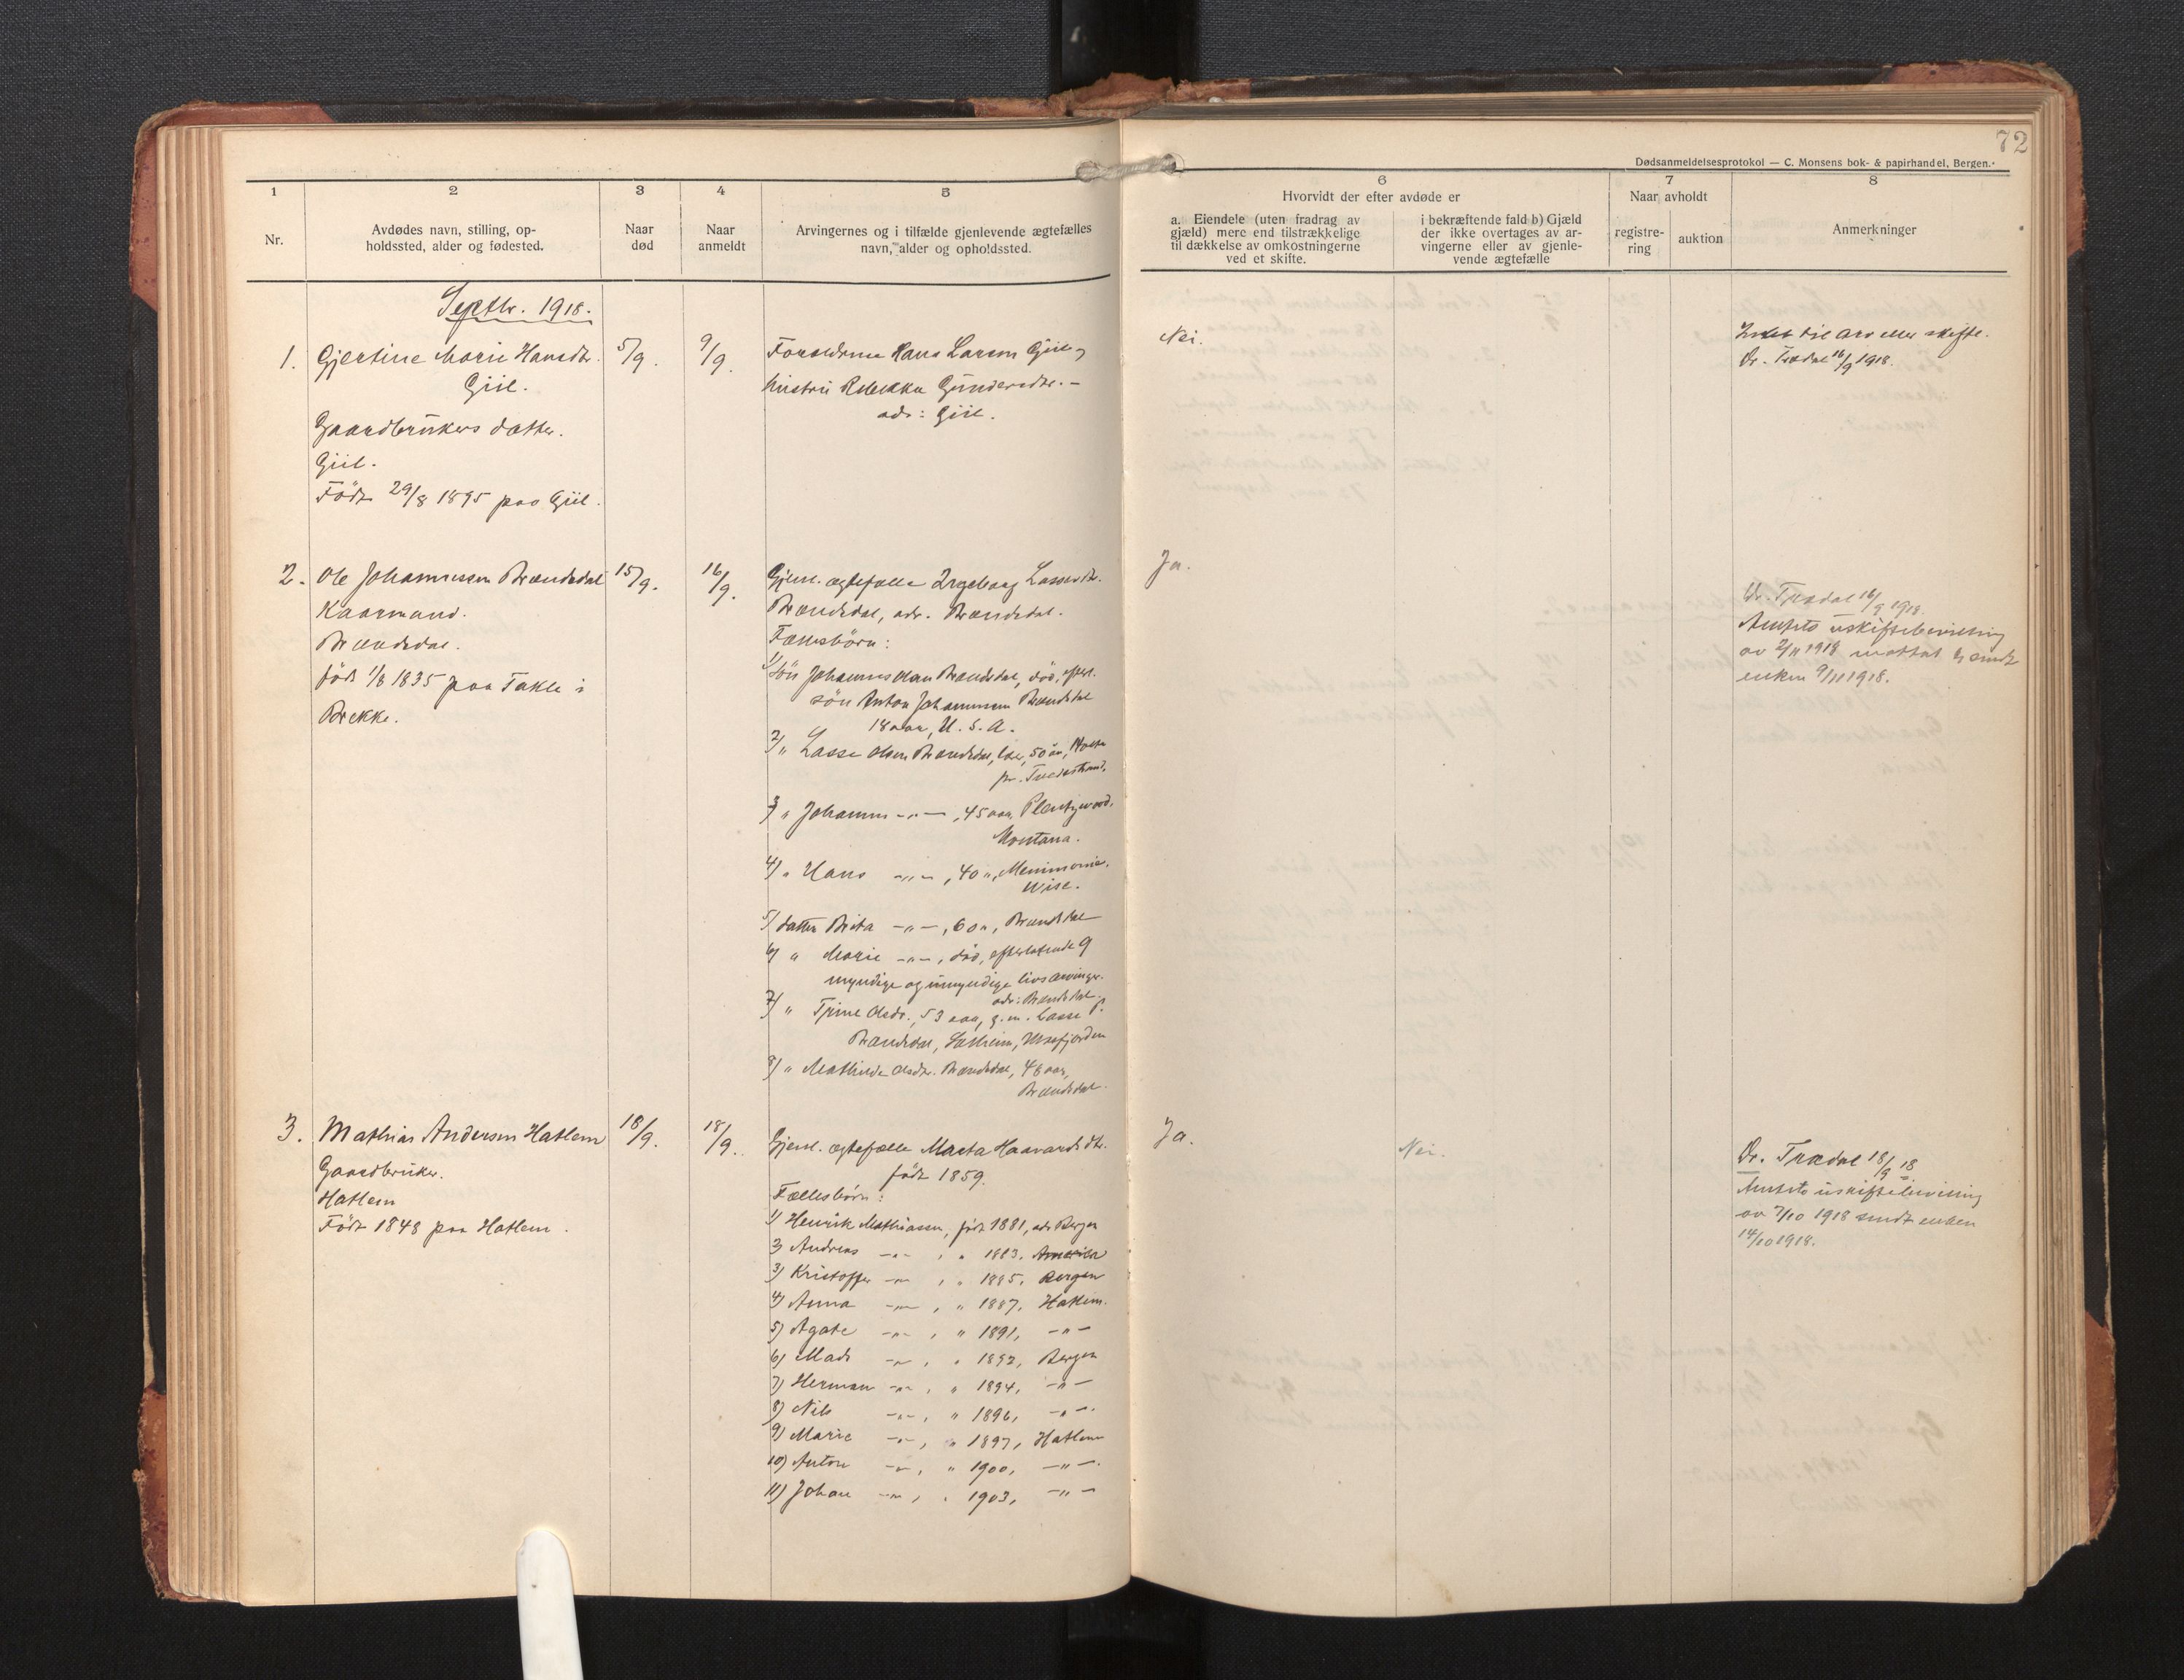 72
Dødsanmeldelsesprotokol — C. Monsens bok- & papirhandel, Bergen.
1
2
3
4
5
6
7
8
Nr.
Avdødes navn, stilling, op-
holdssted, alder og fødested.
Naar
død
Naar
anmeldt
Arvingernes og i tilfælde gjenlevende ægtefælles
navn, alder og opholdssted.
Hvorvidt der efter avdøde er
a. Eiendele (uten fradrag av
gjæld) mere end tilstrækkelige
til dækkelse av omkostningerne
ved et skifte.
i bekræftende fald b) Gjæld
der ikke overtages av ar-
vingerne eller av gjenle-
vende ægtefælle
Naar avholdt
registre-
ring
auktion
Anmerkninger
Septbr. 1918.
1. Gjertine Marie Hansdtr.
Giil.
Gaardbrukers datter.
Giil.
Födt 29/8 1895 paa Giil.
5/9.
9/9.
Forældrene Hans Larsen Giil og
hustru Rebekka Gundersdtr. –
adr: Giil.
Nei.
Intet til arv eller skifte.
Dr. Trædal 16/9 1918.
2. Ole Johannessen Brændsdal
Kaarmand.
Brændsdal.
född 1/8 1835 paa Takle i
Brekke.
15/9.
16/9.
Gjenl. ægtefælle Ingeborg Lassesdtr.
Brændsdal, adr. Brændsdal.
Fællesbörn:
1/ Sön Johannes Olsen Brændsdal, död, efterl.
sön Anton Johannessen Brændsdal
18 aar, U. S. A.
2/ " Lasse Olsen Brændsdal, 50 aar,
pr. Tvedestrand.
3/ " Johannes -"- , 45 aar, Plentywood,
Montana.
4/ " Hans -"- , 40 ", Menimonie,
Wisc.
5/ datter Brita -"- , 60 ", Brændsdal
6/ " Marie -"- , död, efterlatende 9
myndige og umyndige livsarvinger.
adr: Brændsdal.
7/ " Tjine Olsdr., 53 aar, g. m. Lasse P.
Brændsdal,
8/ " Mathilde Olsdtr. Brændsdal, 48 aar,
Brændsdal.
Ja.
Dr. Trædal 16/9 1918.
Amtets uskiftebevilling
av 2/11 1918 mottat & sendt
enken 9/11 1918.
3. Mathias Andersen Hatlem
Gaardbruker.
Hatlem
Födt 1848 paa Hatlem.
18/9.
18/9.
Gjenl. ægtefælle Marta Haavardsdtr.
födt 1859.
Fællesbörn:
1) Henrik Mathiassen, födt 1881, adr Bergen
2) Andreas -"- , " 1883, Amerika
3) Kristoffer -"- , " 1885, Bergen
4) Anna -"- , " 1887, Hatlem.
5) Agate -"- , " 1891, -"-
6) Mads -"- , " 1892, Bergen
7) Herman -"- , " 1894, -"-
8) Nils -"- , " 1896, -"-
9) Marie -"- , " 1897, Hatlem
10) Anton -"- , " 1900, -"-
11) Johan -"- , " 1903, -"-
Ja.
Nei.
Dr. Trædal 18/9 18.
Amtets uskiftebevilling
av 7/10 1918 sendt enken
14/10 1918.